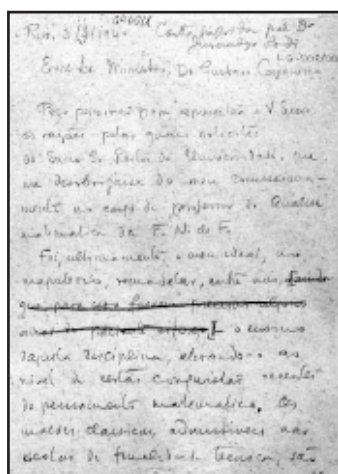 Rio, 3/
Exmo Sr. Ministro, Dr. Gustavo Capanema
Peço permissão para apresentar a V. Excia
as razões pelas quais solicitei
do Exmo Sr. Reitor da Universidade, que
me desobrigasse do meu comissiona-
mento no cargo de professor de Analise
matematica da F. N. de F.
Foi, ultimamente, o meu ideal, no
magisterio, remodelar, entre nós,
que para isso fossem precisos alguns
anos de paciente esforço, o ensino
daquela disciplina, elevando-o ao
nivel de certas conquistas recentes
do pensamento matematico. Os
moldes classicos admissiveis nas
escolas de finalidade tecnica, são